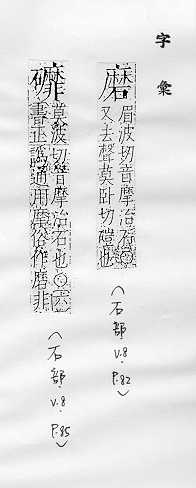 字彙
磨 眉波切音摩治石○
又去聲莫卧切磑也
(石部 V.8. P.82)
䃺 莫波切音摩治石也○六
書正譌通用摩俗作磨非
(石部. V.8. P.85)